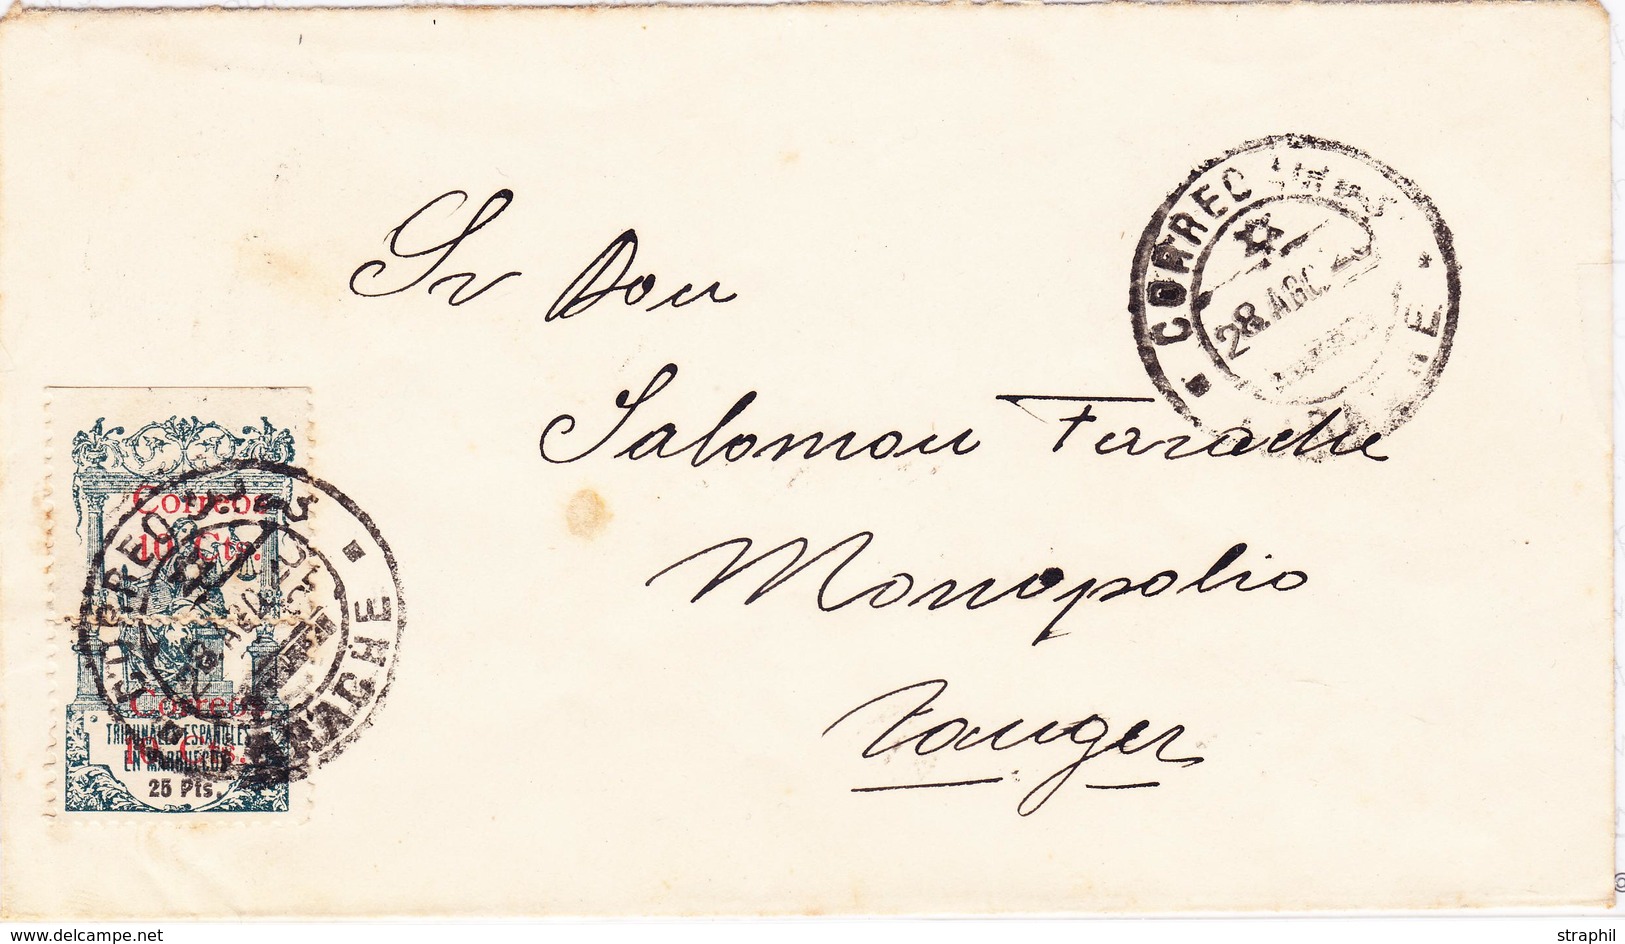 Sr Don
Salomon Farache
Monopolio
Tanger
CORREO
28 AGO
Correos
10 Cts.
Correos
10 Cts.
TRIBUNALES ESPAÑOLES
EN MARRUECOS
25 Pts.
CORREO
28 AGO
LARACHE
www.delcampe.net
straphil